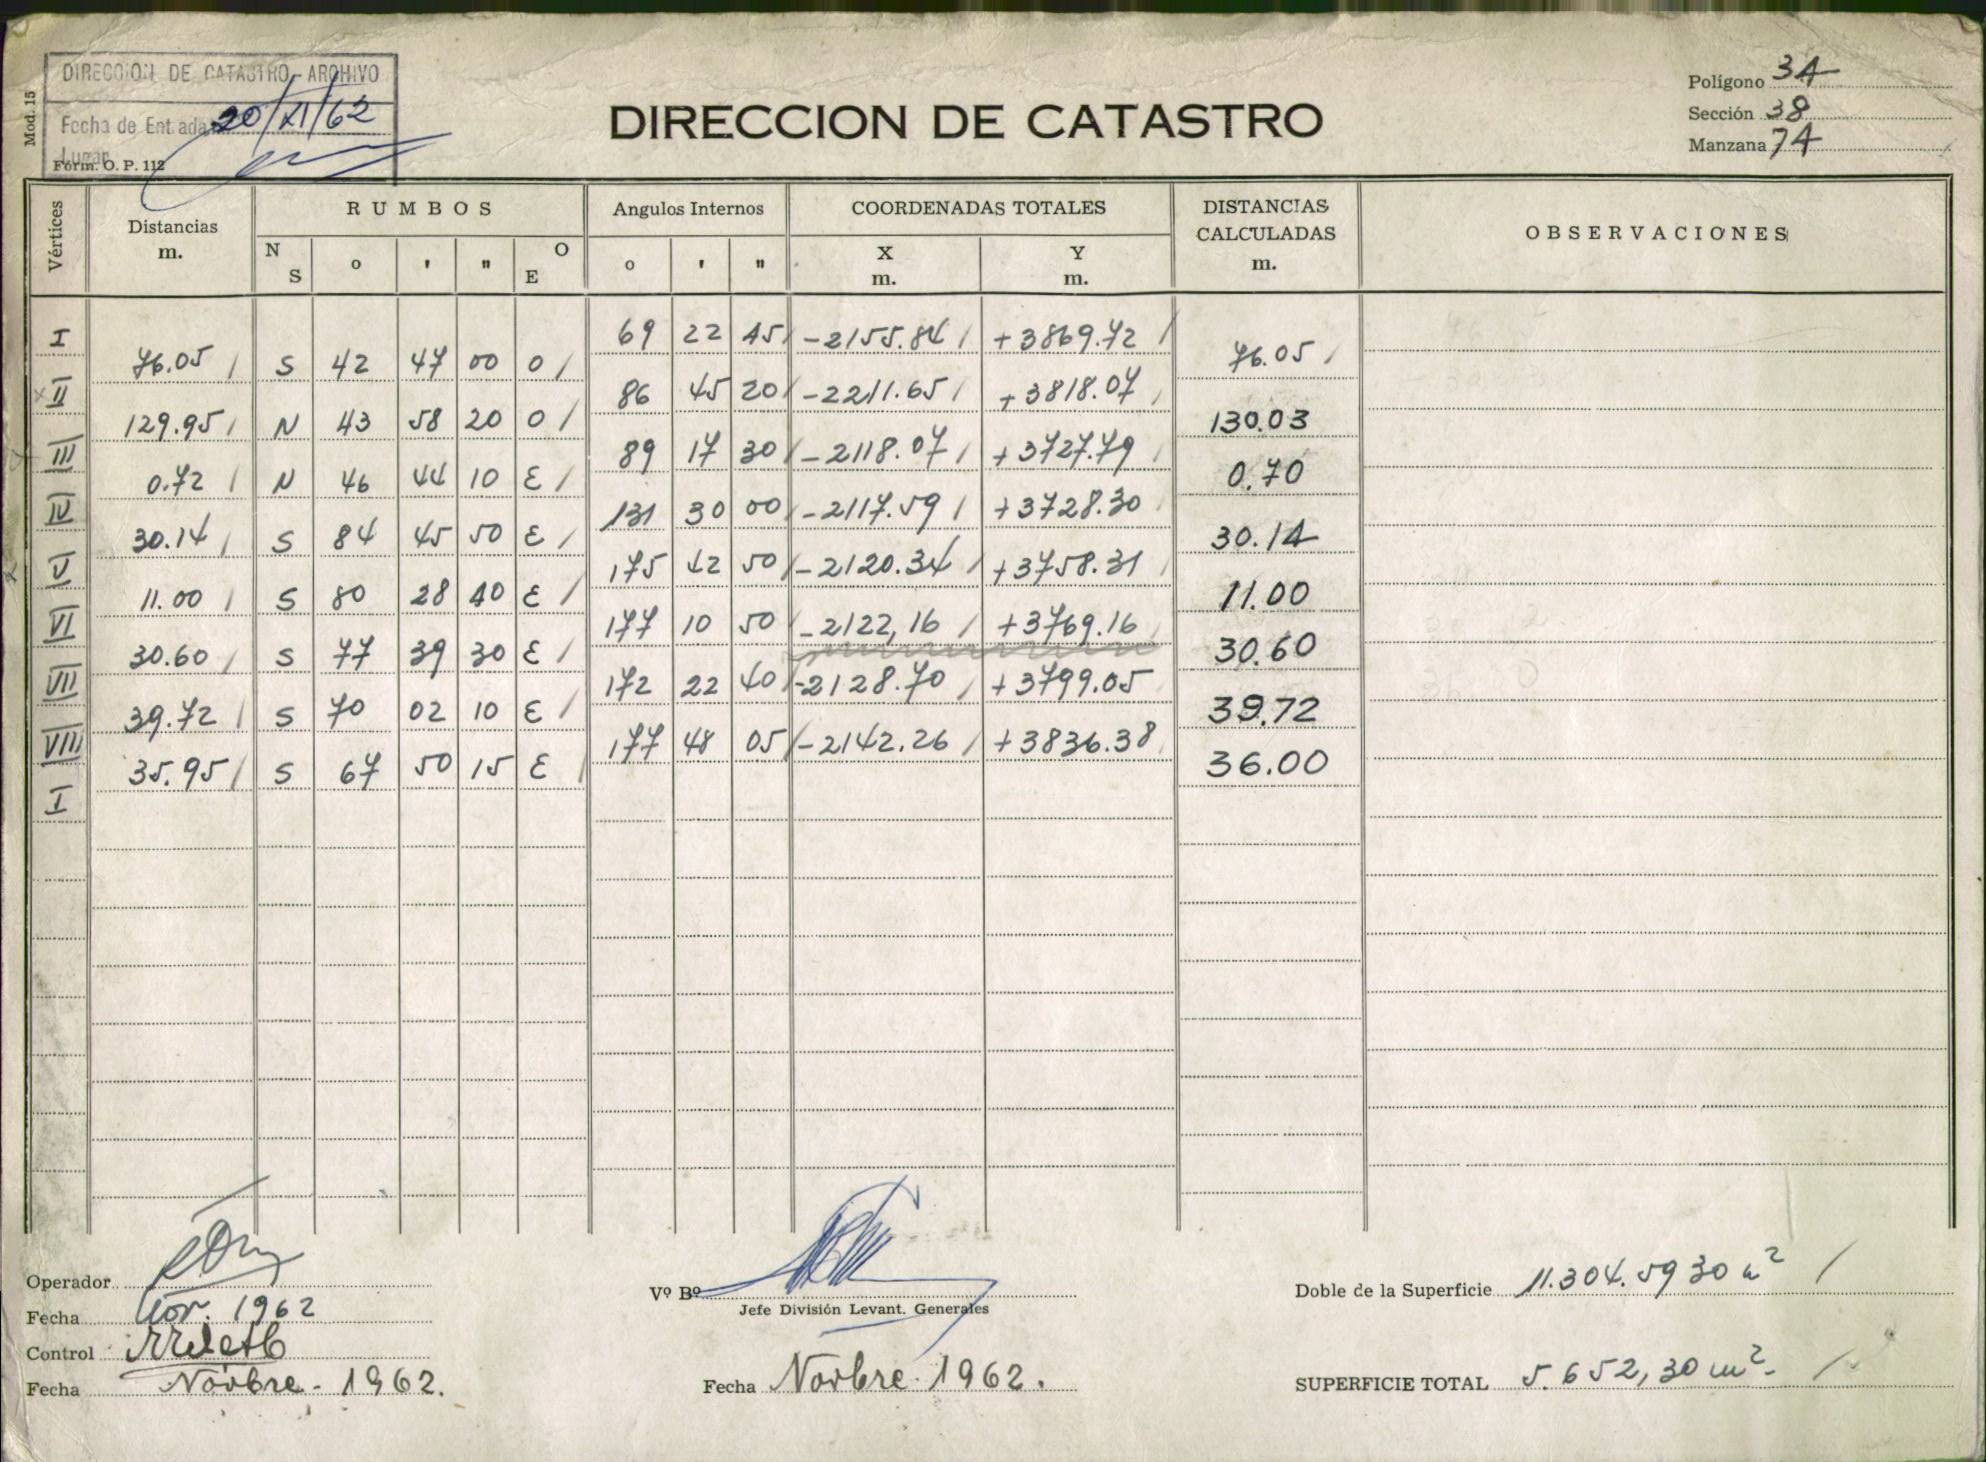 DIRECCION DE CATASTRO - ARCHIVO
Fecha de Entrada 20/XI/62
Lugar
Mod. 15
Form. O. P. 112
DIRECCION DE CATASTRO
Polígono 34
Sección 38
Manzana 74
Vértices
Distancias m.
RUMBOS
N S o ' " O E
Angulos Internos
o ' "
COORDENADAS TOTALES
X m. Y m.
DISTANCIAS CALCULADAS m.
OBSERVACIONES
I 69 22 45 -2155.84 +3869.72
76.05 S 42 47 00 O 76.05
II 86 45 20 -2211.65 +3818.07
129.95 N 43 58 20 O 130.03
III 89 17 30 -2118.07 +3727.79
0.72 N 46 44 10 E 0.70
IV 131 30 00 -2117.59 +3728.30
30.14 S 84 45 50 E 30.14
V 175 42 50 -2120.34 +3758.31
11.00 S 80 28 40 E 11.00
VI 177 10 50 -2122,16 +3769.16
30.60 S 77 39 30 E 30.60
VII 172 22 40 -2128.70 +3799.05
39.72 S 70 02 10 E 39.72
VIII 177 48 05 -2142.26 +3836.38
35.95 S 67 50 15 E 36.00
I
Operador
Fecha Nov. 1962
Control
Fecha Novbre - 1962.
Vº Bº
Jefe División Levant. Generales
Fecha Novbre. 1962.
Doble de la Superficie 11.304.5930 m²
SUPERFICIE TOTAL 5.652,30 m².